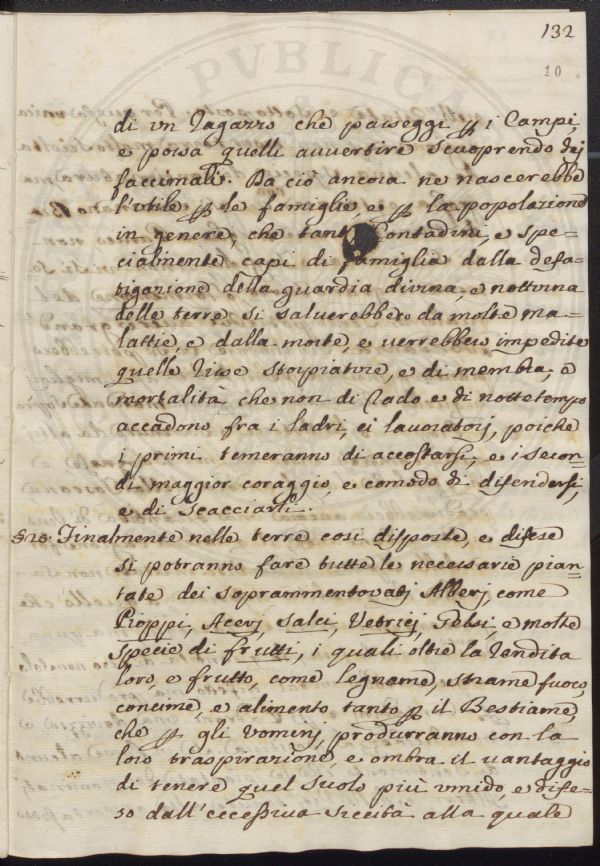 132
10
di vn Ragazzo che passeggi p i Campi,
e possa quelli auuertire scuoprendo dej
faccimali. Da ciò ancora ne nascerebbe
l'vtile p le famiglie, e p la popolazione
in genere, che tanti Contadini, e spe=
cialmente capi di famiglia dalla defa=
tigazione della guardia diurna, e notturna
delle terre si saluerebbero da molte ma=
lattie, e dalla morte, e uerrebbero impedite
quelle risse storpiature, e di membra, e
mortalità che non di rado e di notte tempo
accadono fra i ladri, ei lauoratorj, poiche
i primi temeranno di accostarsi, e i secon=
di maggior coraggio, e comodo di difendersi,
e di scacciarli.
§20. Finalmente nelle terre cosi disposte, e difese
si potranno fare tutte le necessarie pian=
tate dei soprammentovatj Alberj, come
Pioppi, Acerj, salci, Vetricj, Gelsi, e molte
specie di frutti, i quali oltre la Vendita
loro, e frutto, come legname, strame fuoco,
concime, e alimento tanto p il Bestiame,
che p gli vominj, produrranno con la
loro traspirazione, e ombra il uantaggio
di tenere quel suolo più vmido, e dife=
so dall'eccessiua siccità alla quale
PVBLICA